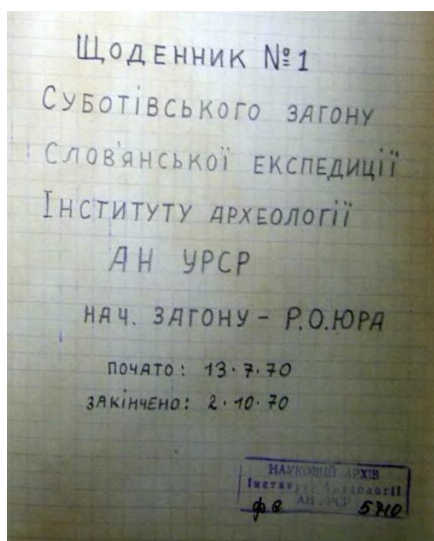 Щоденник №1
Суботівського загону
Слов'янської експедиції
Інституту археології
АН УРСР
нач. загону – Р.О.Юра
почато: 13.7.70
закінчено: 2.10.70
НАУКОВИЙ АРХІВ
Інституту Археології
АН УРСР
фе 5710